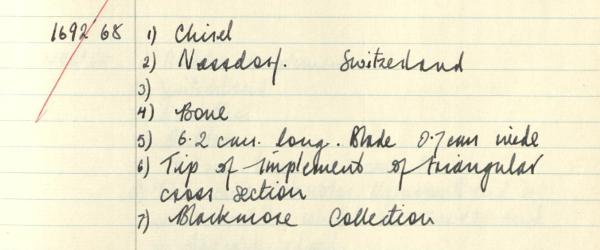 1692 68 1) Chisel
2) Nussdorf. Switzerland
3)
4) Bone
5) 6.2 cms. long. Blade 0.7 cms wide
6) Tip of implement of triangular
cross section
7) Blackmore Collection